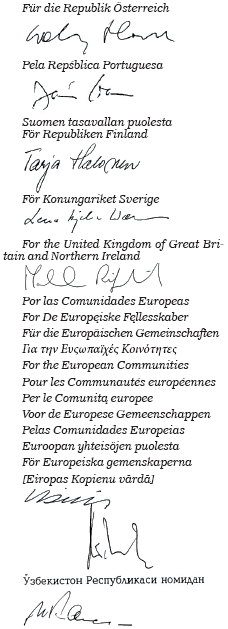 Für die Republik Österreich
Pela Repsblica Portuguesa
Suomen tasavallan puolesta
För Republiken Finland
Tarja Halonen
För Konungariket Sverige
For the United Kingdom of Great Bri-
tain and Northern Ireland
Por las Comunidades Europeas
For De Europęiske Fęllesskaber
Für die Europäischen Gemeinschaften
Για την Ευςωπαϊχές Κοινότητες
For the European Communities
Pour les Communautés européennes
Per le Comunitą europee
Voor de Europese Gemeenschappen
Pelas Comunidades Europeias
Euroopan yhteisöjen puolesta
För Europeiska gemenskaperna
[Eiropas Kopienu vārdā]
Ўзбекистон Республикаси номидан